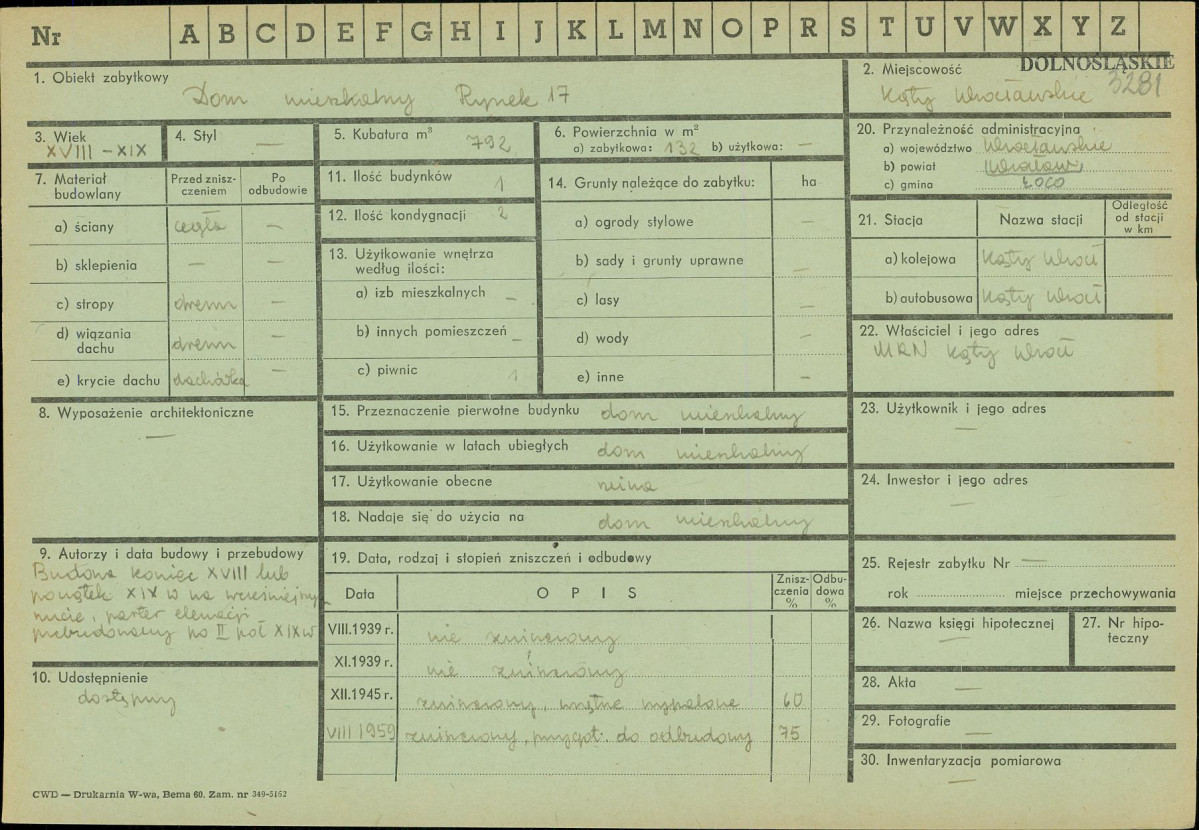 Nr A B C D E F G H I J K L M N O P R S T U V W X Y Z
1. Obiekt zabytkowy
Dom mieszkalny Rynek 17
2. Miejscowość
DOLNOŚLĄSKIE
3281
Kąty Wrocławskie
3. Wiek
XVIII - XIX
4. Styl
—
5. Kubatura m³
792
6. Powierzchnia w m²
a) zabytkowa: 132 b) użytkowa: —
20. Przynależność administracyjna
a) województwo Wrocławskie
b) powiat Wrocław
c) gmina Loco
7. Materiał
budowlany
Przed znisz-
czeniem
Po
odbudowie
a) ściany cegła —
b) sklepienia — —
c) stropy drewn —
d) wiązania
dachu drewn —
e) krycie dachu dachówka —
11. Ilość budynków 1
12. Ilość kondygnacji 2
13. Użytkowanie wnętrza
według ilości:
a) izb mieszkalnych —
b) innych pomieszczeń —
c) piwnic 1
14. Grunty należące do zabytku: ha
a) ogrody stylowe —
b) sady i grunty uprawne —
c) lasy —
d) wody —
e) inne —
21. Stacja Nazwa stacji
Odległość
od stacji
w km
a) kolejowa Kąty Wroł
b) autobusowa Kąty Wroł
22. Właściciel i jego adres
MRN Kąty Wroł
8. Wyposażenie architektoniczne
—
15. Przeznaczenie pierwotne budynku dom mieszkalny
16. Użytkowanie w latach ubiegłych dom mieszkalny
17. Użytkowanie obecne ruina
18. Nadaje się do użycia na dom mieszkalny
23. Użytkownik i jego adres
—
24. Inwestor i jego adres
—
9. Autorzy i data budowy i przebudowy
Budowa koniec XVIII lub
początek XIX w na wcześniejszym
rzucie, parter elewacji
przebudowany po II poł XIX w
10. Udostępnienie
dostępny
19. Data, rodzaj i stopień zniszczeń i odbudowy
Data OPIS
Znisz-
czenia
%
Odbu-
dowa
%
VIII.1939 r. nie zniszczony
XI.1939 r. nie zniszczony
XII.1945 r. zniszczony, wnętrze wypalone 60
VIII 1959 zniszczony, przygot. do odbudowy 75
25. Rejestr zabytku Nr —
rok miejsce przechowywania
26. Nazwa księgi hipotecznej
—
27. Nr hipo-
teczny
28. Akta —
29. Fotografie
—
30. Inwentaryzacja pomiarowa
—
CWD — Drukarnia W-wa, Bema 60. Zam. nr 349-5162